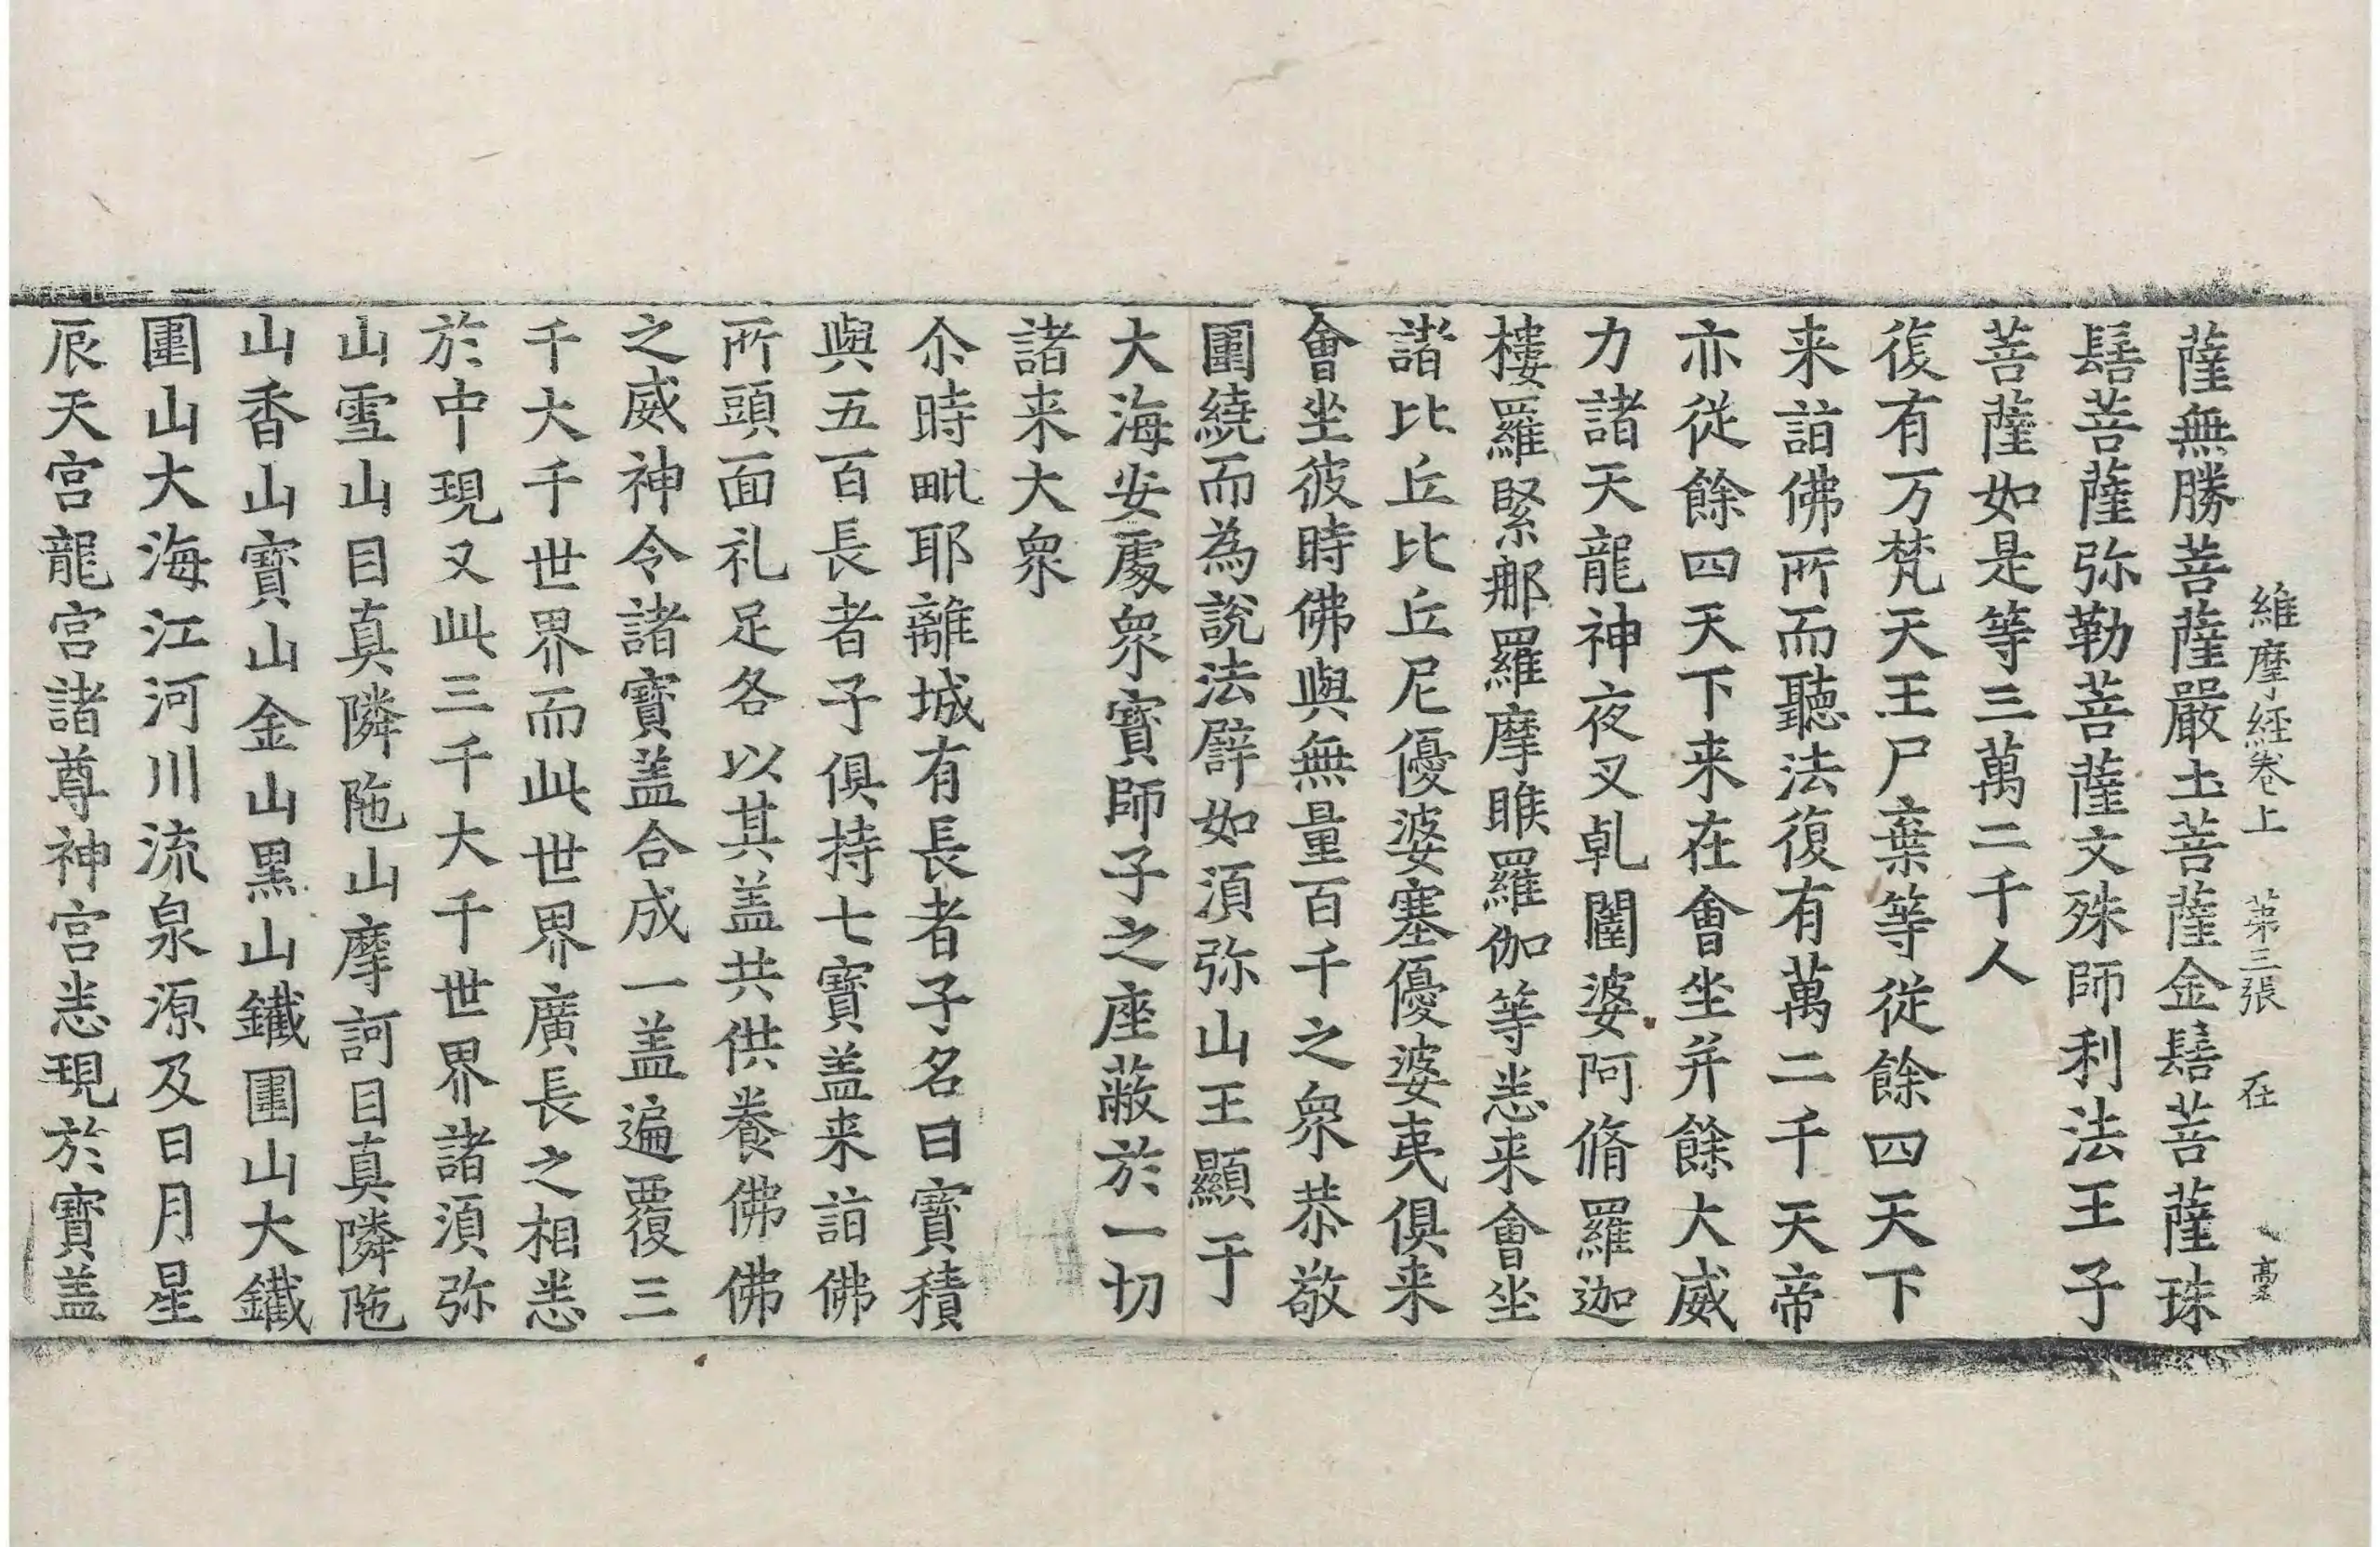 維摩經卷上　第三張　在
薩無勝菩薩嚴土菩薩金髻菩薩珠
髻菩薩弥勒菩薩文殊師利法王子
菩薩如是等三萬二千人
復有万梵天王尸棄等從餘四天下
来詣佛所而聽法復有萬二千天帝
亦從餘四天下来在會坐并餘大威
力諸天龍神夜叉乹闥婆阿脩羅迦
樓羅緊那羅摩睺羅伽等悉来會坐
諸比丘比丘尼優婆塞優婆夷俱来
會坐彼時佛與無量百千之衆恭敬
圍繞而為說法譬如湏弥山王顯于
大海安處衆寶師子之座蔽於一切
諸来大衆
尒時毗耶離城有長者子名曰寶積
與五百長者子俱持七寶盖来詣佛
所頭面礼足各以其盖共供養佛佛
之威神令諸寶盖合成一盖遍覆三
千大千世界而此世界廣長之相悉
於中現又此三千大千世界諸湏弥
山雪山目真隣陁山摩訶目真隣陁
山香山寶山金山黒山鐵圍山大鐵
圍山大海江河川流泉源及日月星
辰天宮龍宮諸尊神宮悉現於寶盖